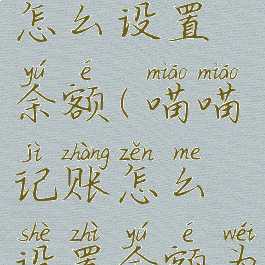 怎么设置
yú é miāo miāo
余额(喵喵
jì zhàng zěn me
记账怎么
shè zhì yú é wéi
设置余额为